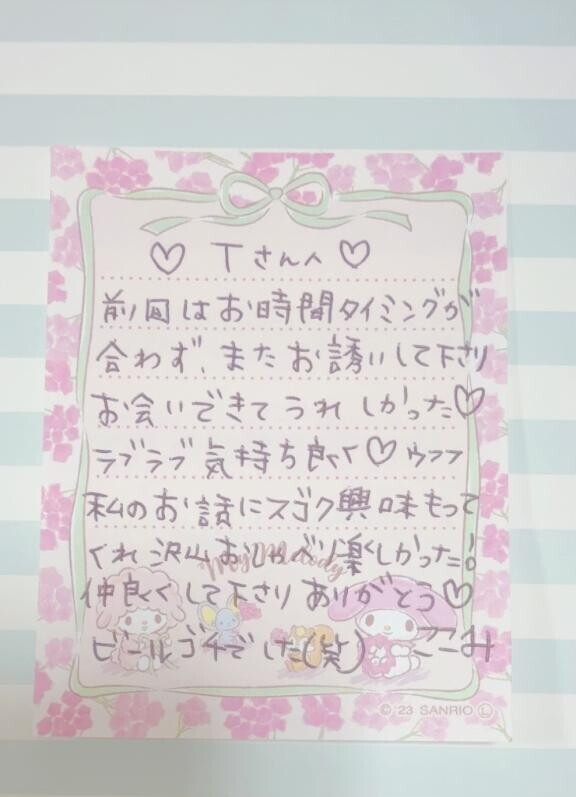 ♡ Tさんへ ♡
前回はお時間タイミングが
合わず、またお誘いして下さり
お会いできてうれしかった♡
ラブラブ気持ち良くて♡ウフフ
私のお話にスゴク興味もって
くれ沢山おしゃべり楽しかった!
My Melody
仲良くして下さりありがとう♡
ビールゴチでした(笑) ここみ
© '23 SANRIO Ⓛ